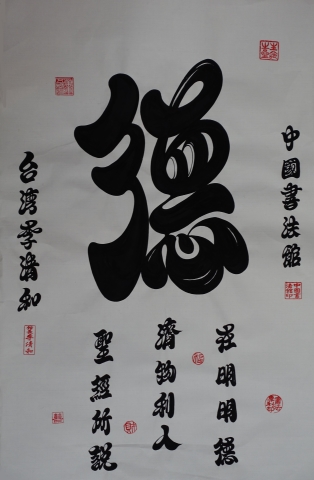 德
中國書法館
在明明德
濟物利人
聖經所說
台湾李清和